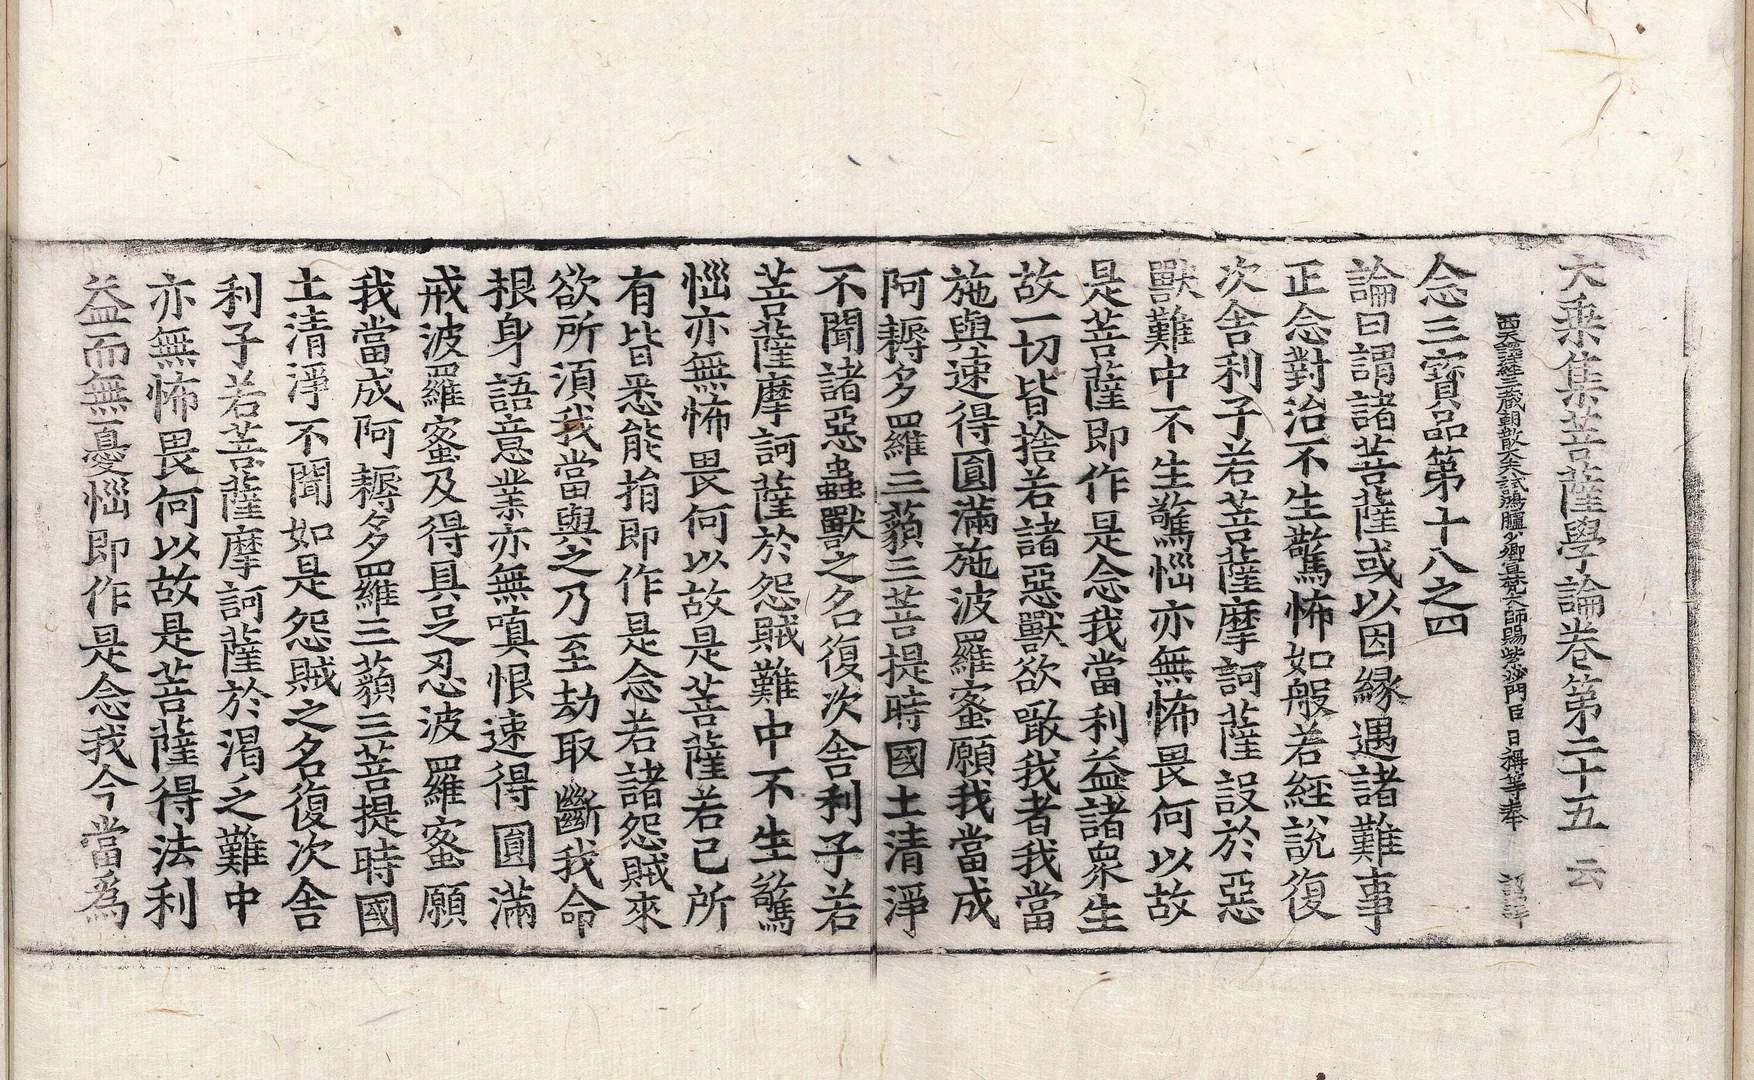 大乗集菩薩學論卷第二十五　云
西天譯經三藏朝散大夫試鴻臚少卿宣梵大師賜紫沙門臣日稱等奉　詔譯
念三寶品第十八之四
論曰謂諸菩薩或以因縁遇諸難事
正念對治不生驚怖如般若經說復
次舍利子若菩薩摩訶薩設於惡
獸難中不生驚惱亦無怖畏何以故
是菩薩即作是念我當利益諸衆生
故一切皆捨若諸惡獸欲噉我者我當
施與速得圓滿施波羅蜜願我當成
阿耨多羅三藐三菩提時國土清淨
不聞諸惡蟲獸之名復次舍利子若
菩薩摩訶薩於怨賊難中不生驚
惱亦無怖畏何以故是菩薩若己所
有皆悉能捐即作是念若諸怨賊來
欲所須我當與之乃至劫取斷我命
根身語意業亦無嗔恨速得圓滿
戒波羅蜜及得具足忍波羅蜜願
我當成阿耨多羅三藐三菩提時國
土清淨不聞如是怨賊之名復次舍
利子若菩薩摩訶薩於渴乏難中
亦無怖畏何以故是菩薩得法利
益而無憂惱即作是念我今當爲